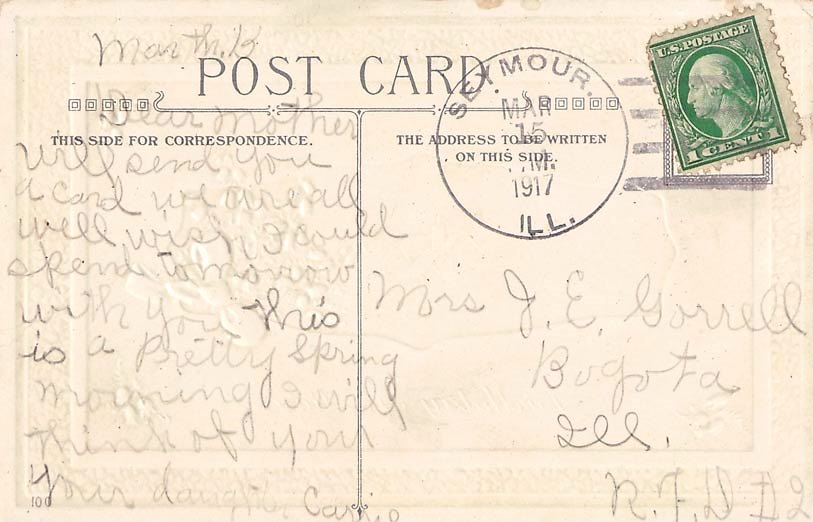 March. 15
POST CARD.
SEYMOUR.
MAR
15
M.
1917
ILL.
U.S. POSTAGE
1 CENT 1
THIS SIDE FOR CORRESPONDENCE.
THE ADDRESS TO BE WRITTEN
ON THIS SIDE.
Dear Mother
will send you
a card we are all
well wish I could
spend tomorrow
with you this
is a Pretty Spring
morning I will
think of you
Your daughter Carrie
100
Mrs J. E. Gorrell
Bogota
Ill.
R. F. D #2